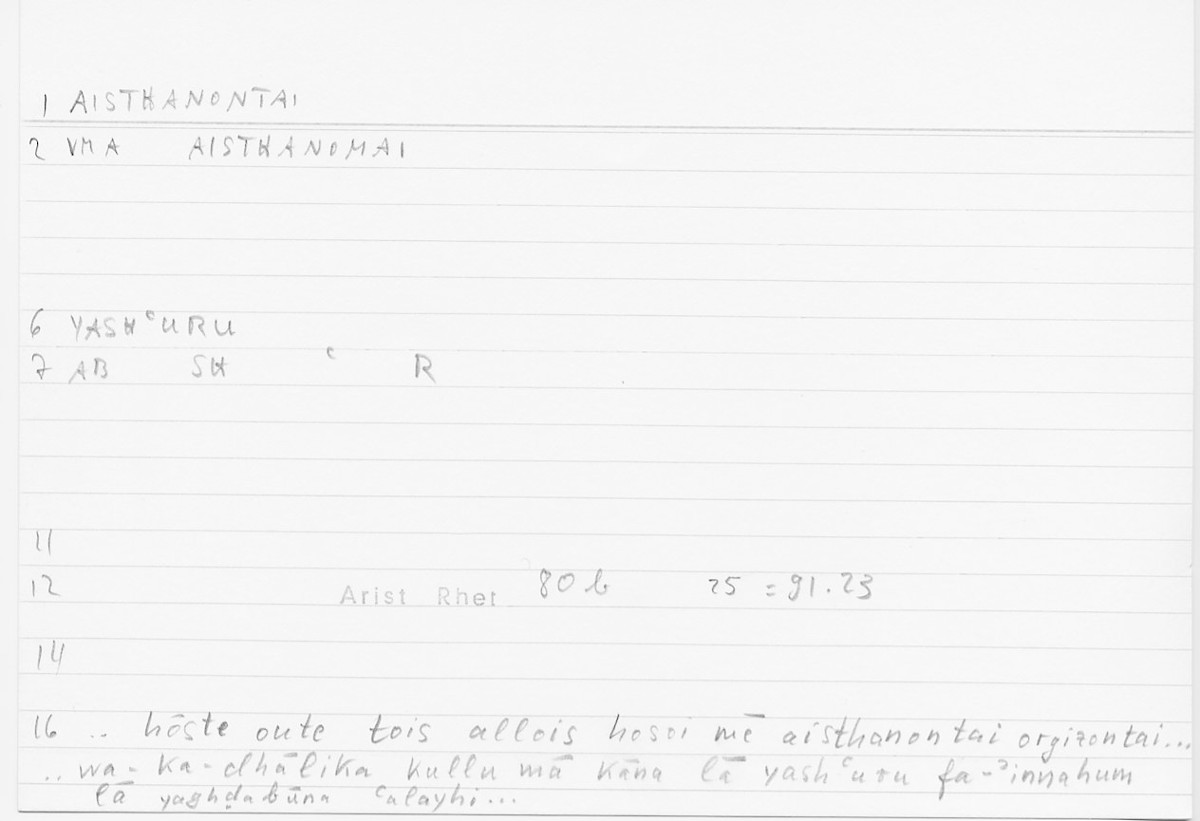 1 AISTHANONTAI
2 VMA AISTHANOMAI
6 YASHʿURU
7 AB SH ʿ R
11
12 Arist Rhet 80 b 25 = 91.23
14
16 .. hōste oute tois allois hosoi mē aisthanontai orgizontai...
.. wa-ka-dhālika kullu mā kāna lā yashʿuru fa-ʾinnahum
lā yaghḍabūna ʿalayhi...